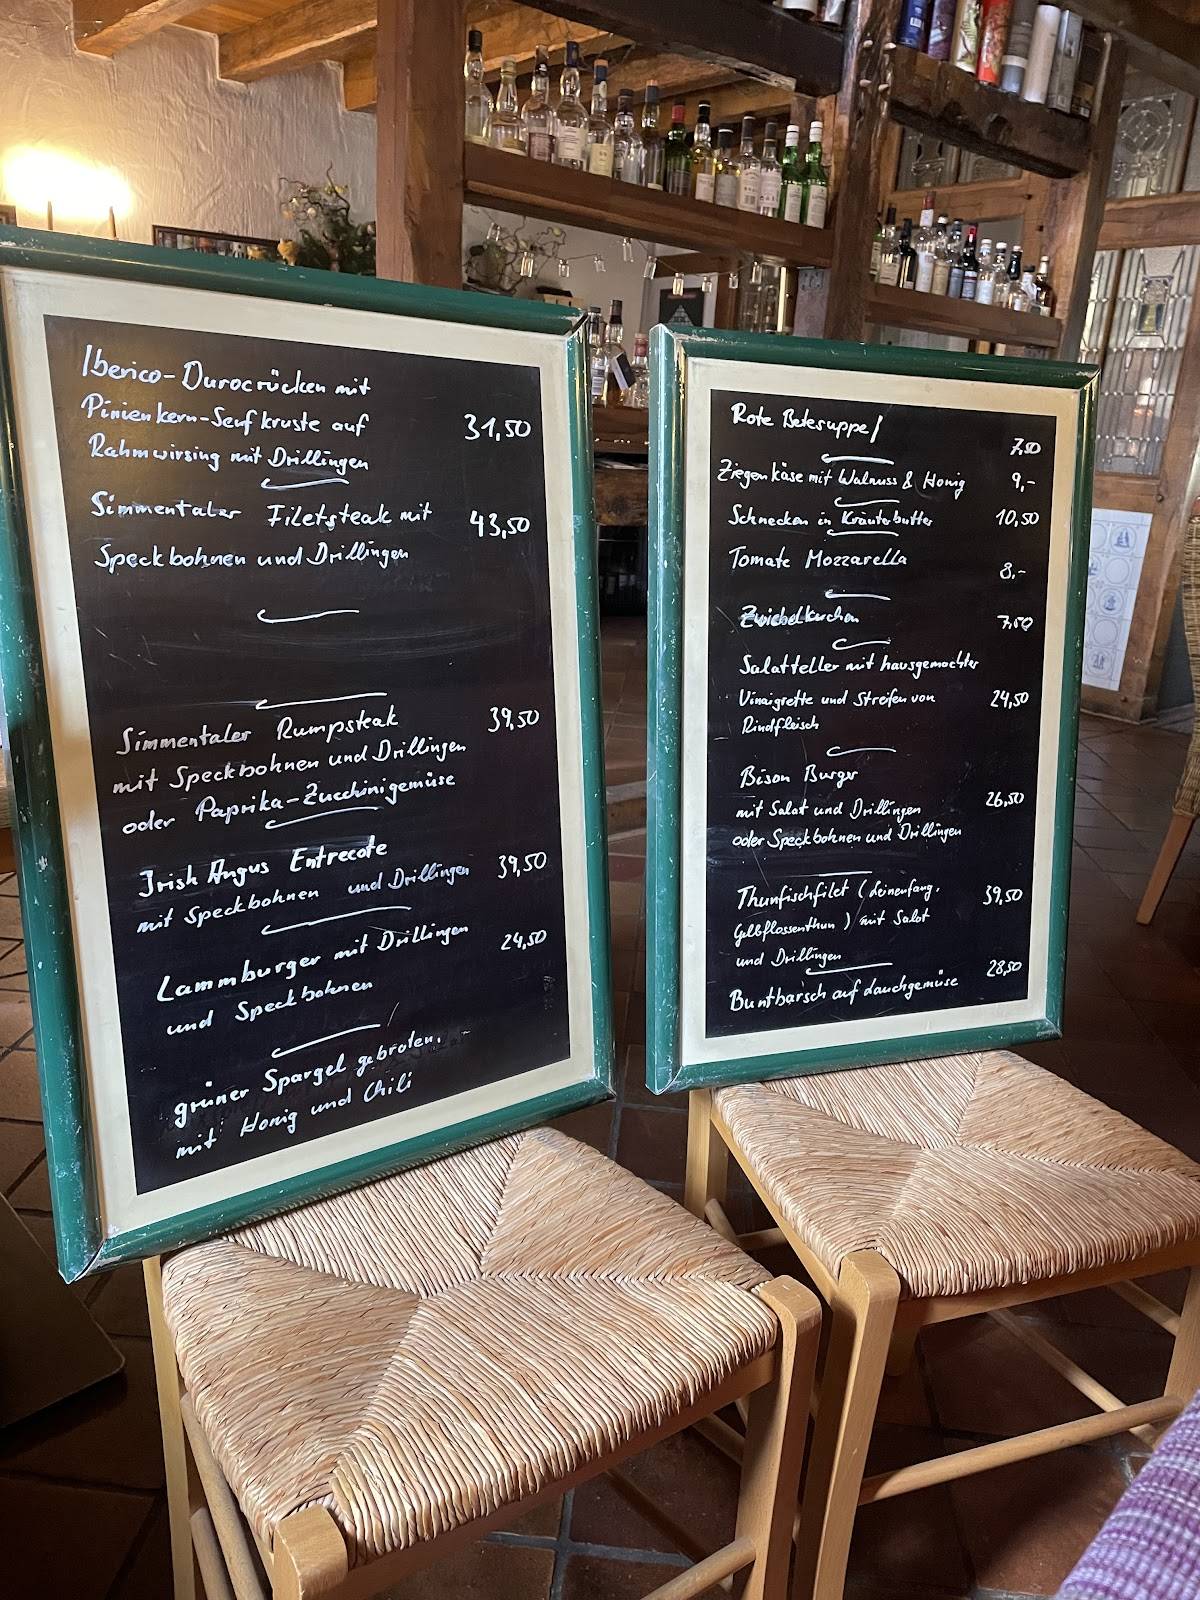 Iberico-Durocrücken mit
Pinienkern-Senfkruste auf 31,50
Rahmwirsing mit Drillingen
Simmentaler Filetsteak mit 43,50
Speckbohnen und Drillingen
Simmentaler Rumpsteak 39,50
mit Speckbohnen und Drillingen
oder Paprika-Zucchinigemüse
Irish Angus Entrecote 39,50
mit Speckbohnen und Drillingen
Lammburger mit Drillingen 24,50
und Speckbohnen
grüner Spargel gebraten,
mit Honig und Chili
Rote Betesuppe/ 7,50
Ziegenkäse mit Walnuss & Honig 9,-
Schnecken in Kräuterbutter 10,50
Tomate Mozzarella 8.-
Zwiebelkuchen 7,50
Salatteller mit hausgemachter
Vinaigrette und Streifen von 24,50
Rindfleisch
Bison Burger
mit Salat und Drillingen 26,50
oder Speckbohnen und Drillingen
Thunfischfilet (Leinenfang, 39,50
Gelbflossenthun) mit Salat
und Drillingen
Buntbarsch auf Lauchgemüse 28,50